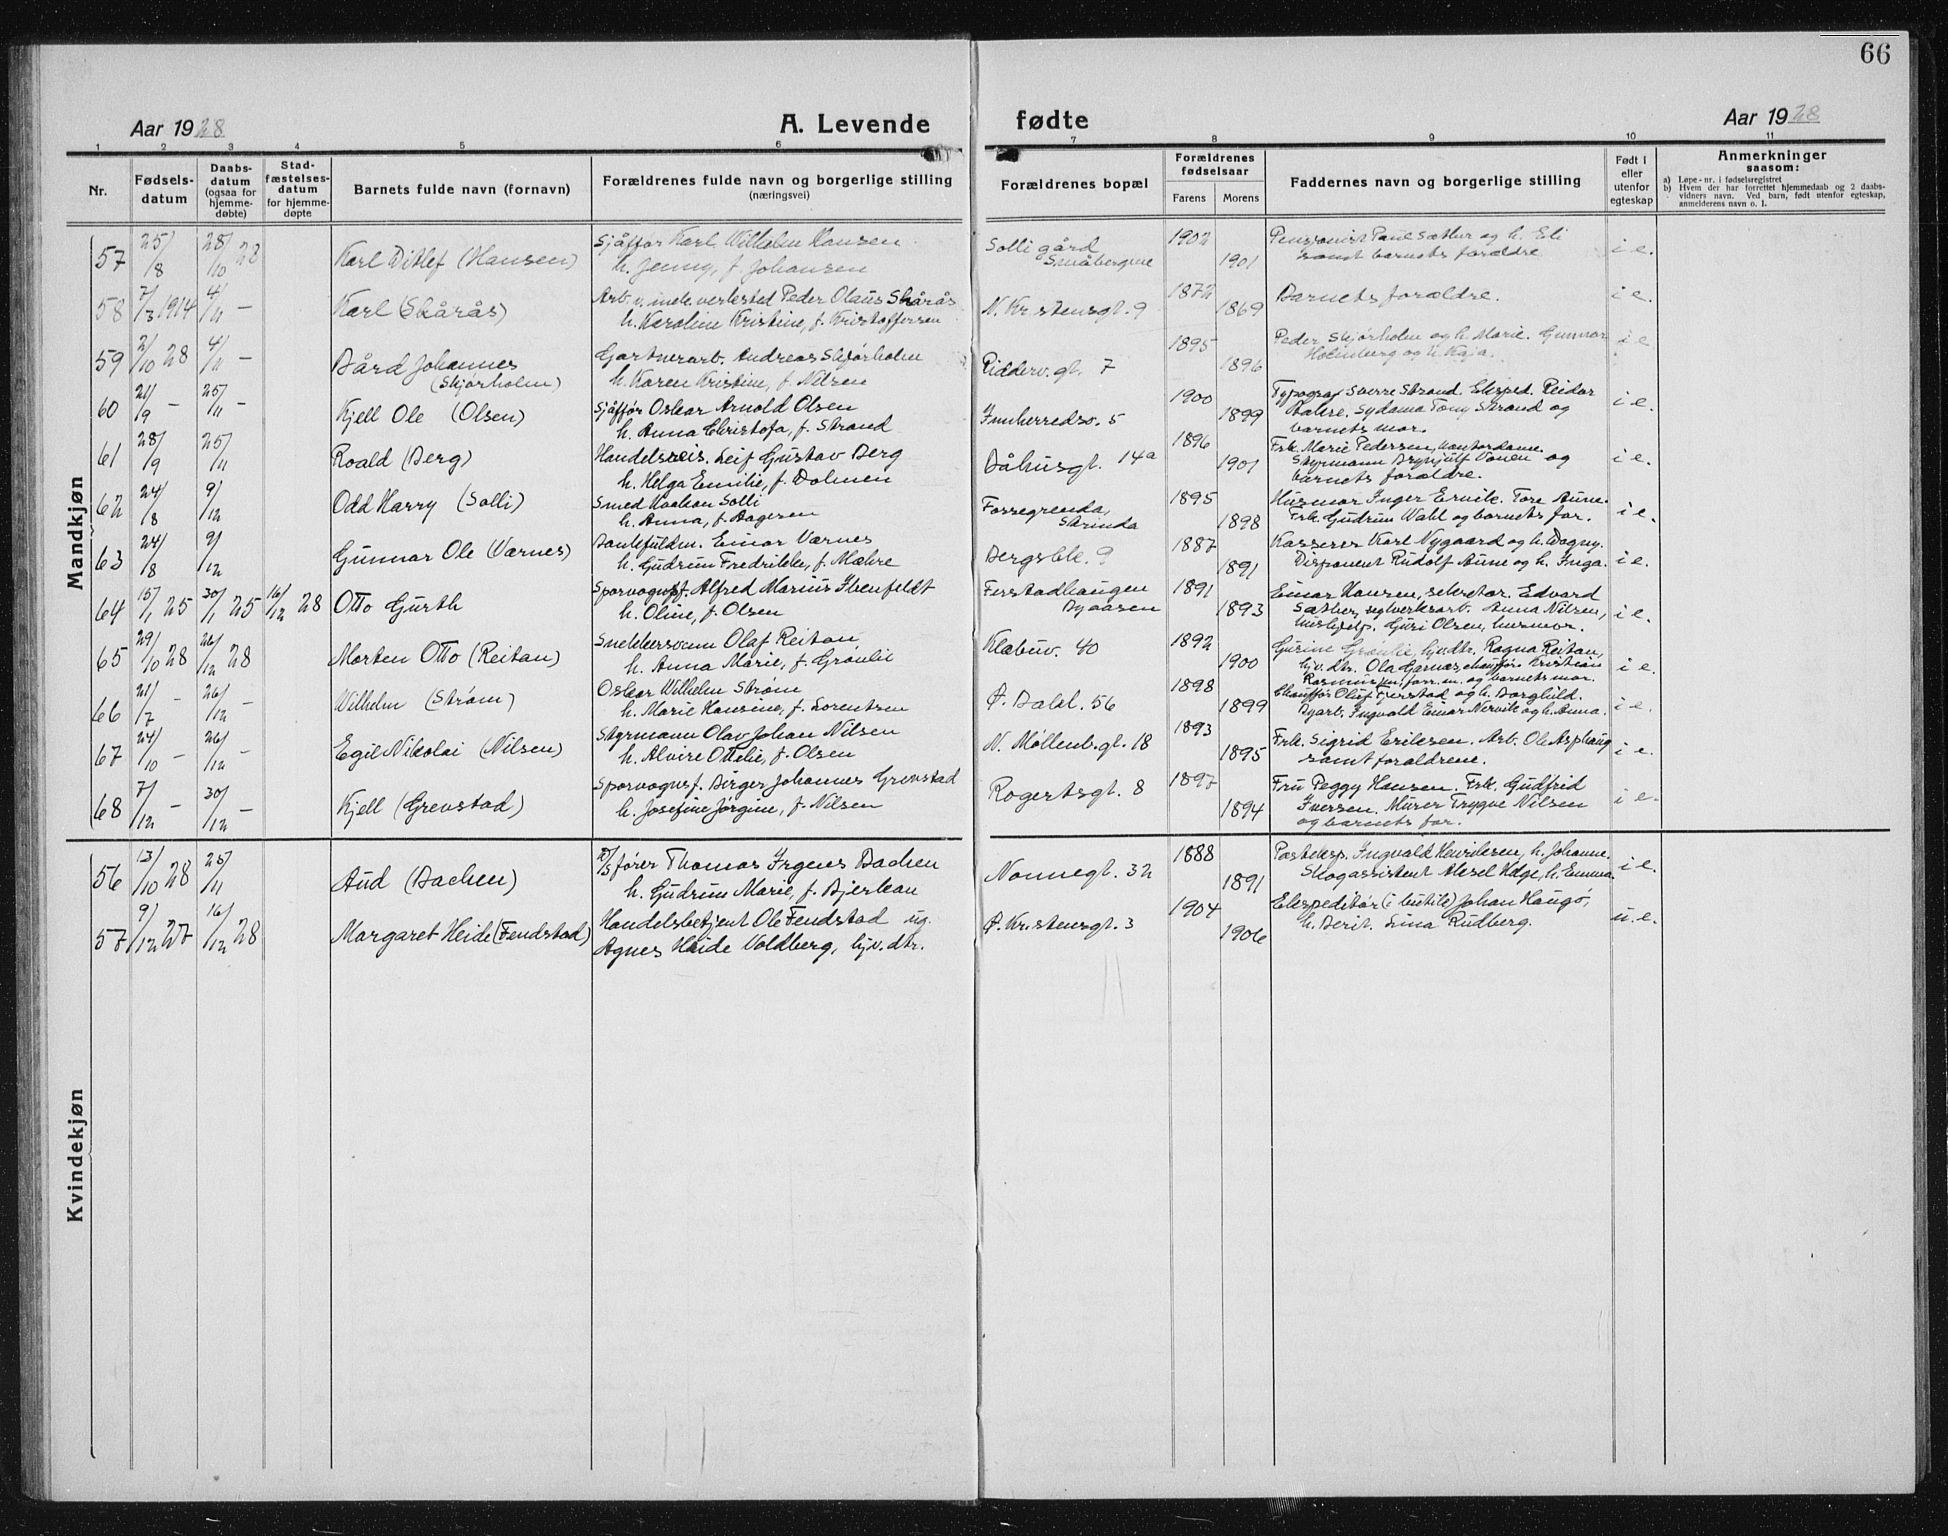 66
Aar 1928
A. Levende fødte
Aar 1928
1 2 3 4 5 6 7 8 9 10 11
Nr.
Fødsels-
datum
Daabs-
datum
(ogsaa for
hjemme-
døbte)
Stad-
fæstelses-
datum
for hjemme-
døpte
Barnets fulde navn (fornavn)
Forældrenes fulde navn og borgerlige stilling
(næringsvei)
Forældrenes bopæl
Forældrenes
fødselsaar
Farens Morens
Faddernes navn og borgerlige stilling
Født i
eller
utenfor
egteskap
Anmerkninger
saasom:
a) Løpe-nr. i fødselsregistret
b) Hvem der har forrettet hjemmedaab og 2 daabs-
vidners navn. Ved barn, født utenfor egteskap,
anmelderens navn o. l.
Mandkjøn
57 25/8 28/10 28 Karl Ditlef (Hansen) Sjåffør Karl Wilhelm Hansen
h. Jenny, f. Johansen
Solli gård
Småbergene
1902 1901
Pensionist Paul Sæther og h. Eli
samt barnets forældre
i e.
58 7/3 1914 4/11 – Karl (Skårås) Arb. v. mek. verksted Peder Olaus Skårås
h. Karoline Kristine, f. Kristoffersen
N. Kristensgt. 9
1872 1869
Barnets forældre.
i e.
59 2/10 28 4/11 – Bård Johannes
(Skjørholm)
Gartnerarb. Andreas Skjørholm
h. Karen Kristine, f. Nilsen
Ridderv. gt. 7
1895 1896
Peder Skjørholm og h. Marie. Gunnar
Holmberg og h. Kaja.
i e
60 21/9 – 25/11 – Kjell Ole (Olsen) Sjåffør Oskar Arnold Olsen
h. Anna Christofa, f. Strand
Innherredsv. 5
1900 1899
Typograf Sverre Strand. Eksped. Reidar
sydama Tony Strand og
barnets mor.
i e.
61 28/9 25/11 Roald (Berg) Handelsreis. Leif Gustav Berg
h. Helga Emilie, f. Dolmen
Båhusgt. 14a
1896 1901
Frk. Marie Pedersen, kontordame.
Styrmann Brynjulf Vonen og
barnets forældre.
i e.
62 24/8 9/12 Odd Harry (Solli) Smed Haakon Solli
h. Anna, f. Aagesen
Fossegrenda,
Strinda
1895 1898
Husmor Inger Ervik. Tore Aune.
Frk. Gudrun Wahl og barnets far.
i e.
63 24/8 9/12 Gunnar Ole (Værnes) Bankfuldm. Einar Værnes
h. Gudrun Fredrikke, f. Mæhre
Bergsbk. 9
1887 1891
Kasserer Karl Nygaard og h. Dagny.
Disponent Rudolf Aune og h. Inga.
i e.
64 15/1 25 30/1 25 16/12 28 Otto Gurth Sporvognsf. Alfred Marius Ibenfeldt
h. Oline, f. Olsen
Ferstadhaugen
Byaasen
1891 1893
Einar Hansen, sekretær. Edvard
Sætber, seglverksarb. Anna Nilsen,
hushjelp. Guri Olsen, husmor.
i e.
65 29/10 28 26/12 28 Morten Otto (Reitan) Snekkersvenn Olaf Reitan
h. Anna Marie, f. Grønlie
Klæbuv. 40
1892 1900
Gurine Grønlie, hjv. dtr. Ragna Reitan,
hjv. dtr. Ola Garnæs, chauffør. Kristian
Rasmussen, forr. m. og barnets mor.
i e.
66 21/7 – 26/12 – Wilhelm (Strøm) Oskar Wilhelm Strøm
h. Marie Hansine, f. Lorentsen
Ø. Bakl. 56
1898 1899
Chauffør Oluf Ferstad og h. Borghild.
Byarb. Ingvald Einar Nervik og h. Anna.
i e.
67 24/10 – 26/12 Egil Nikolai (Nilsen) Styrmann Olav Johan Nilsen
h. Alvire Ottilie, f. Olsen
N. Møllenb. gt. 18
1893 1895
Frk. Sigrid Eriksen. Arb. Ole Asphaug
samt foraldrene.
i e.
68 7/12 – 30/12 – Kjell (Grevstad) Sporvognsf. Birger Johannes Grevstad
h. Josefine Jørgine, f. Nilsen
Rogertsgt. 8
1897 1894
Fru Peggy Hansen. Frk. Gudfrid
Iversen. Murer Trygve Nilsen
og barnets far.
i e.
Kvindekjøn
56 13/10 28 25/11 Aud (Bachen) fører Thomas Irgens Bachen
h. Gudrun Marie, f. Bjerkan
Nonnegt. 32
1888 1891
Posteksp. Ingvald Henriksen, h. Johanne.
Skogassistent Aksel Hæge, h. Emma.
i e.
57 9/12 27 16/12 28 Margaret Heide (Fendstad) Handelsbetjent Ole Fendstad ug.
Agnes Heide Voldberg, hjv. dtr.
Ø. Kristensgt. 3
1904 1906
Ekspeditør (i butik) Johan Haugø,
h. Berit. Lina Rudberg.
u. e.